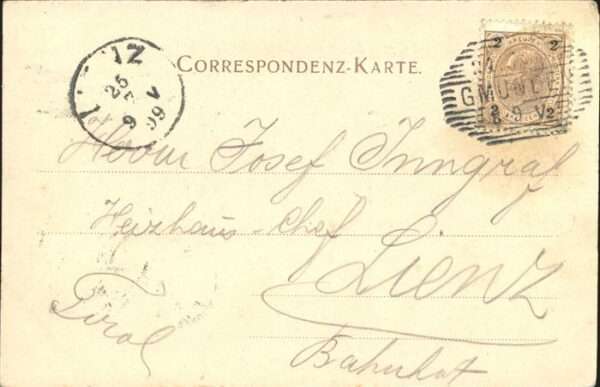 CORRESPONDENZ-KARTE.
2 2
2 2
GMUND
9 V
LIENZ
25
9 V
99
Herrn Josef Inngraf
Heizhaus-Chef
Lienz
Tirol
Bahnhof